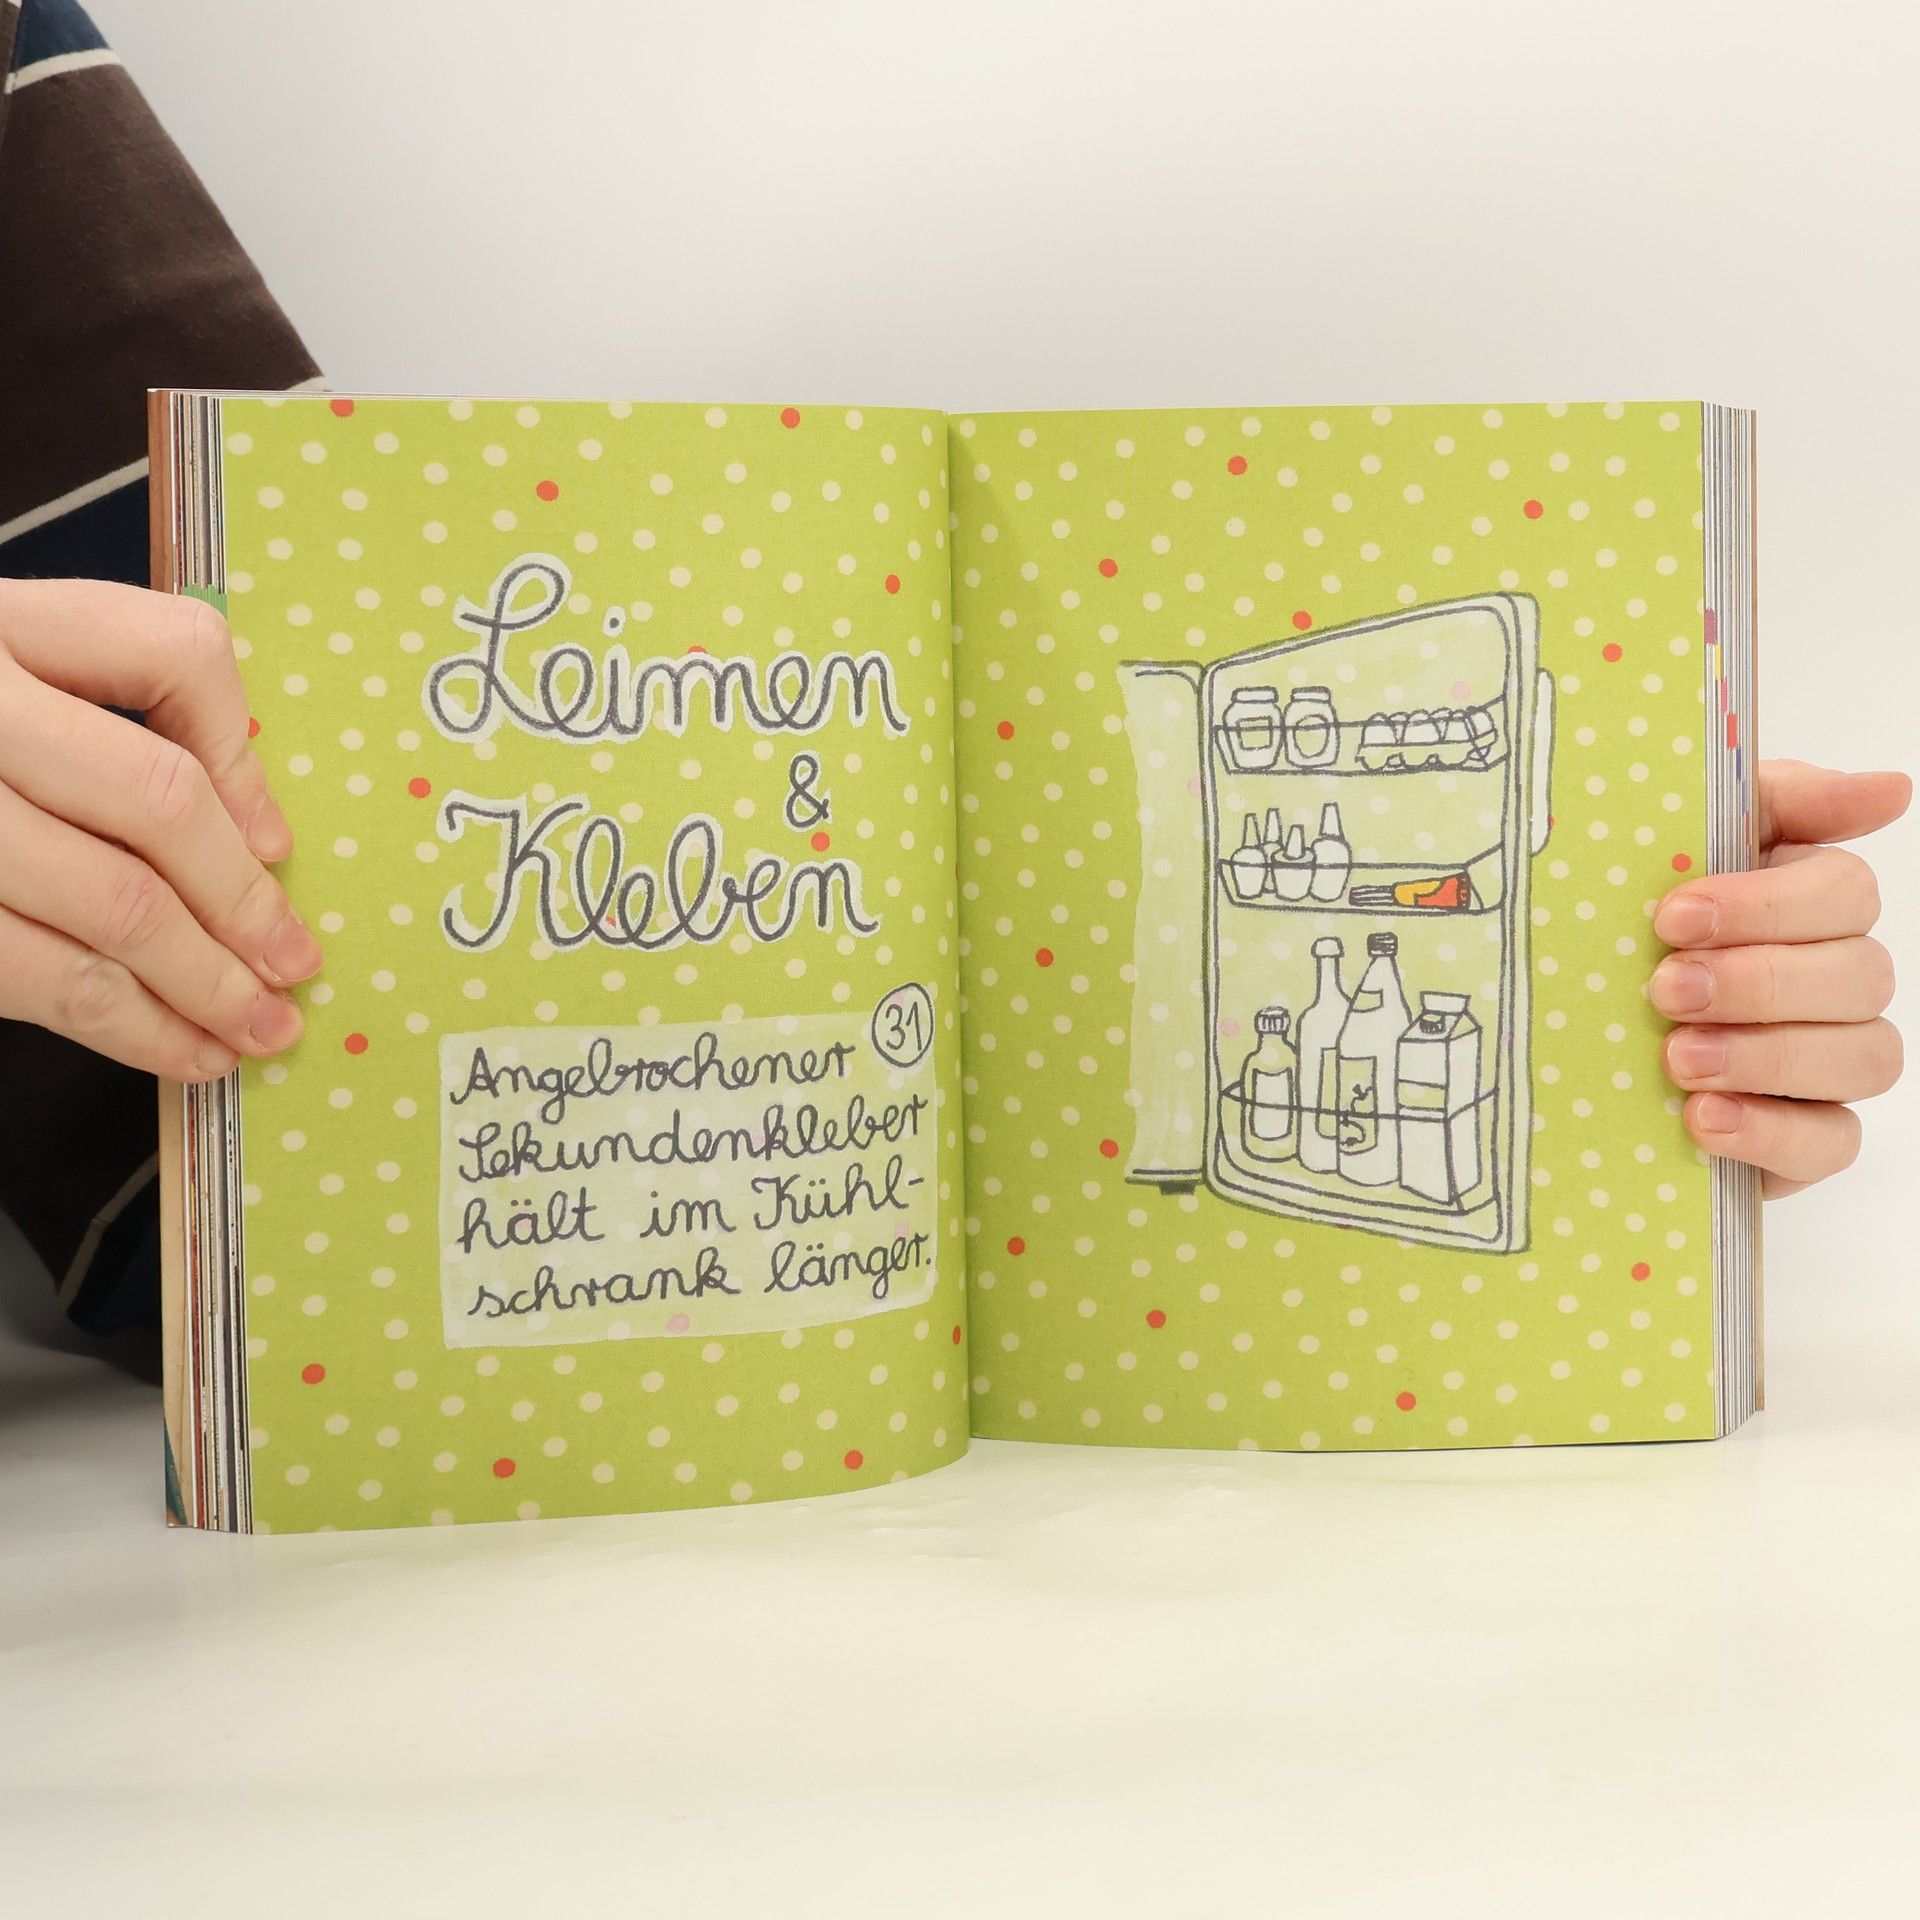 Leimen
&
Kleben
31
Angebrochener
Sekundenkleber
hält im Kühl-
schrank länger.